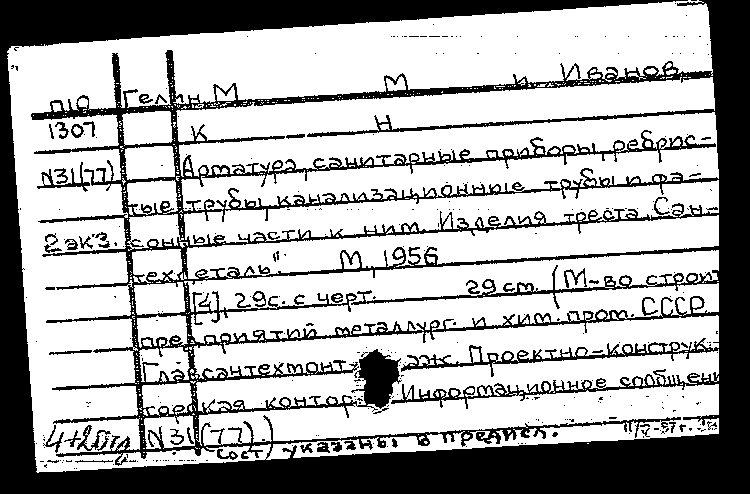 П10 Гелин, М М и Иванов,
1307 К Н
N31(77) Арматура, санитарные приборы, ребрис-
тые трубы, канализационные трубы и фа-
2 экз. сонные части к ним. Изделия треста „Сан-
техдеталь". М., 1956
[4], 29с. с черт. 29 см. (М-во строит
предприятий металлург. и хим. пром. СССР.
Главсантехмонт Проектно-конструк-
торская контор Информационное сообщен
N31(77).)
сост. указаны в предисл.